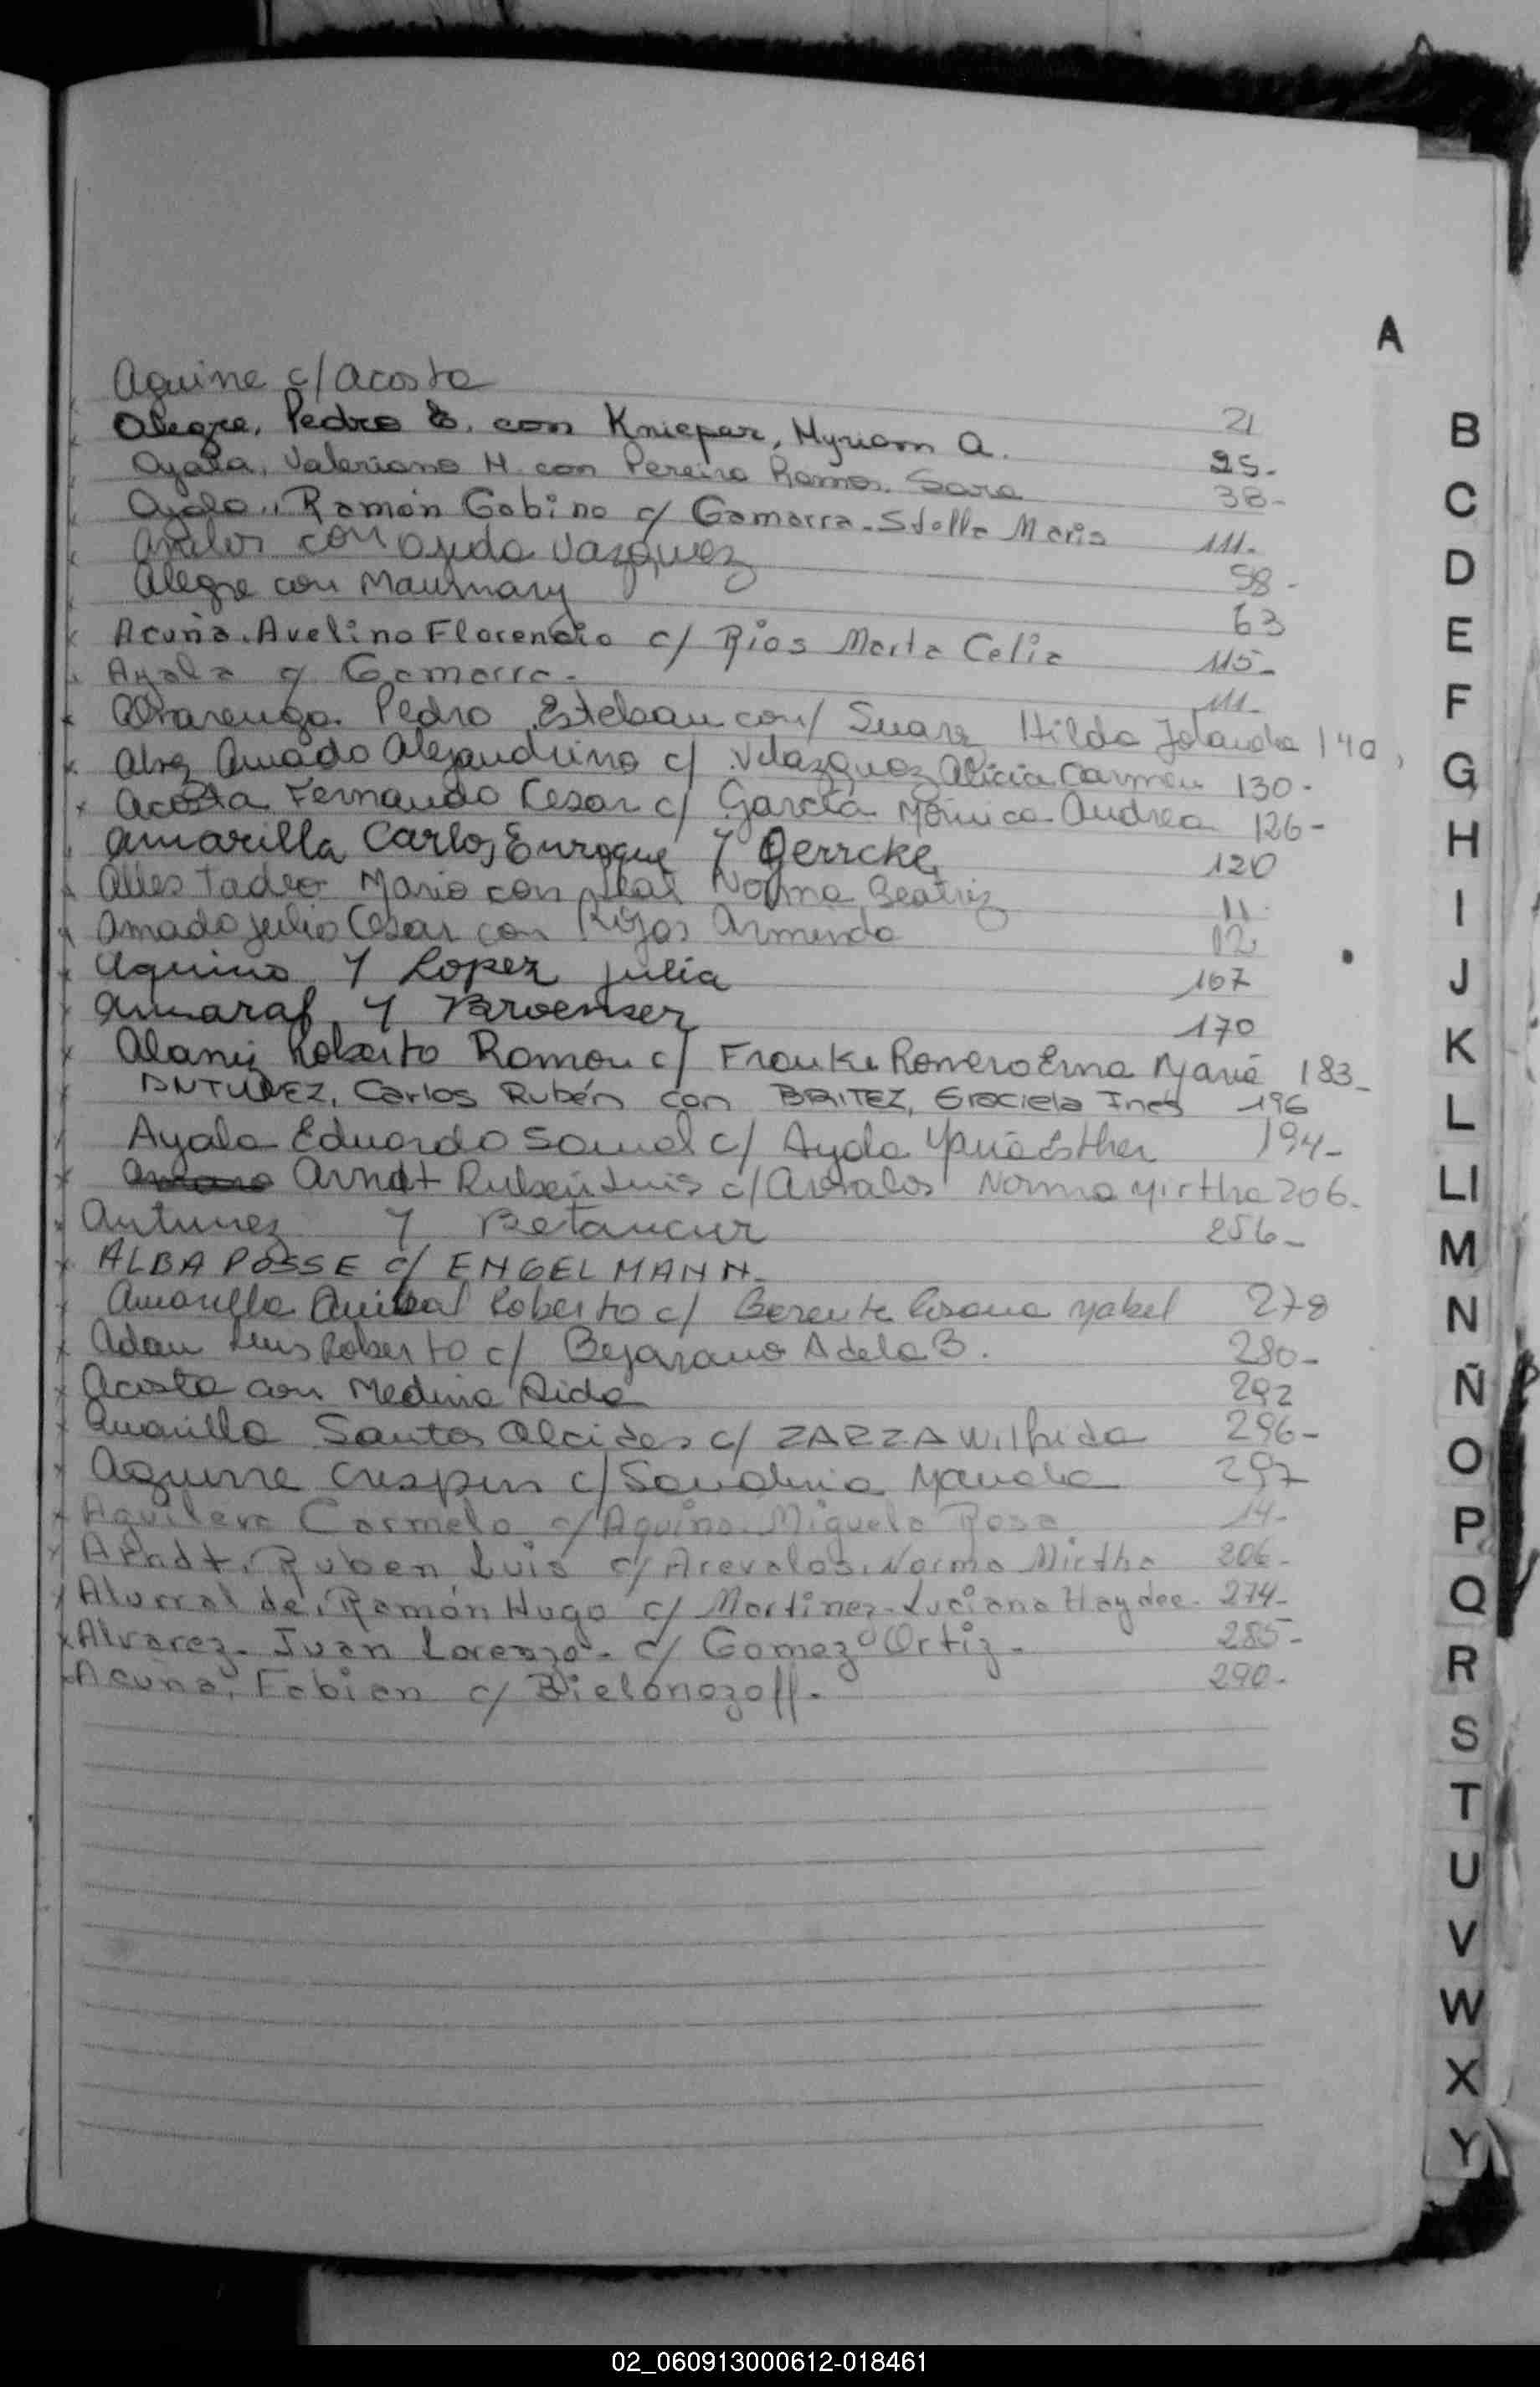 A
Aguirre c/ Acosta 21
Alegre, Pedro E. con Kniepar, Myriam A. 25-
Ayala, Valeriano H. con Pereira Ramos, Sara 38-
Ayala, Ramón Gabino c/ Gamarra - Stella Maris 111-
Avalos con Ojeda Vazquez 58-
Alegre con Maurnary 63
Acuña. Avelino Florencio c/ Rios Marta Celia 115-
Ayala c/ Gamarra - 111-
Alvarenga Pedro Esteban con/ Suarez Hilda Jolanda 140
Alvez Amado Alejandrino c/ Velazquez Alicia Carmen 130-
Acosta Fernando Cesar c/ García Mónica Andrea 126-
Amarilla Carlos Enrroque y Gerrcke 120
Alles Tadeo Mario con Leal Norma Beatriz 11
Amado Julio Cesar con Rojas Arminda 12
Aquino y Lopez Julia 167
Amaral y Broenser 170
Alaniz Roberto Ramon c/ Franke Romero Erna Maria 183-
ANTUNEZ, Carlos Rubén con BRITEZ, Graciela Inés 196
Ayala Eduardo Samuel c/ Ayala María Esther 194-
Arndt Ruben Luis c/ Arevalos Norma Mirtha 206-
Antunez y Betancur 256-
ALBA POSSE c/ ENGELMANN-
Amarilla Anibal Roberto c/ Berente Rosana Mabel 278
Adam Luis Roberto c/ Bejarano Adela B. 280-
Acosta con Medina Aida 292
Amarilla Santos Alcides c/ ZARZA Wilfrida 296-
Aguirre Crespin c/ Sanabria Manola 297
Aguilera Carmelo c/ Aquino Miguela Rosa 14-
Arndt, Ruben Luis c/ Arevalos, Norma Mirtha 206-
Alurralde, Ramón Hugo c/ Martinez - Luciana Haydee - 274-
Alvarez - Juan Lorenzo - c/ Gomez Ortiz - 285-
Acuña, Fabian c/ Bielonozoff - 290-
B
C
D
E
F
G
H
I
J
K
L
Ll
M
N
Ñ
O
P
Q
R
S
T
U
V
W
X
Y
02_060913000612-018461